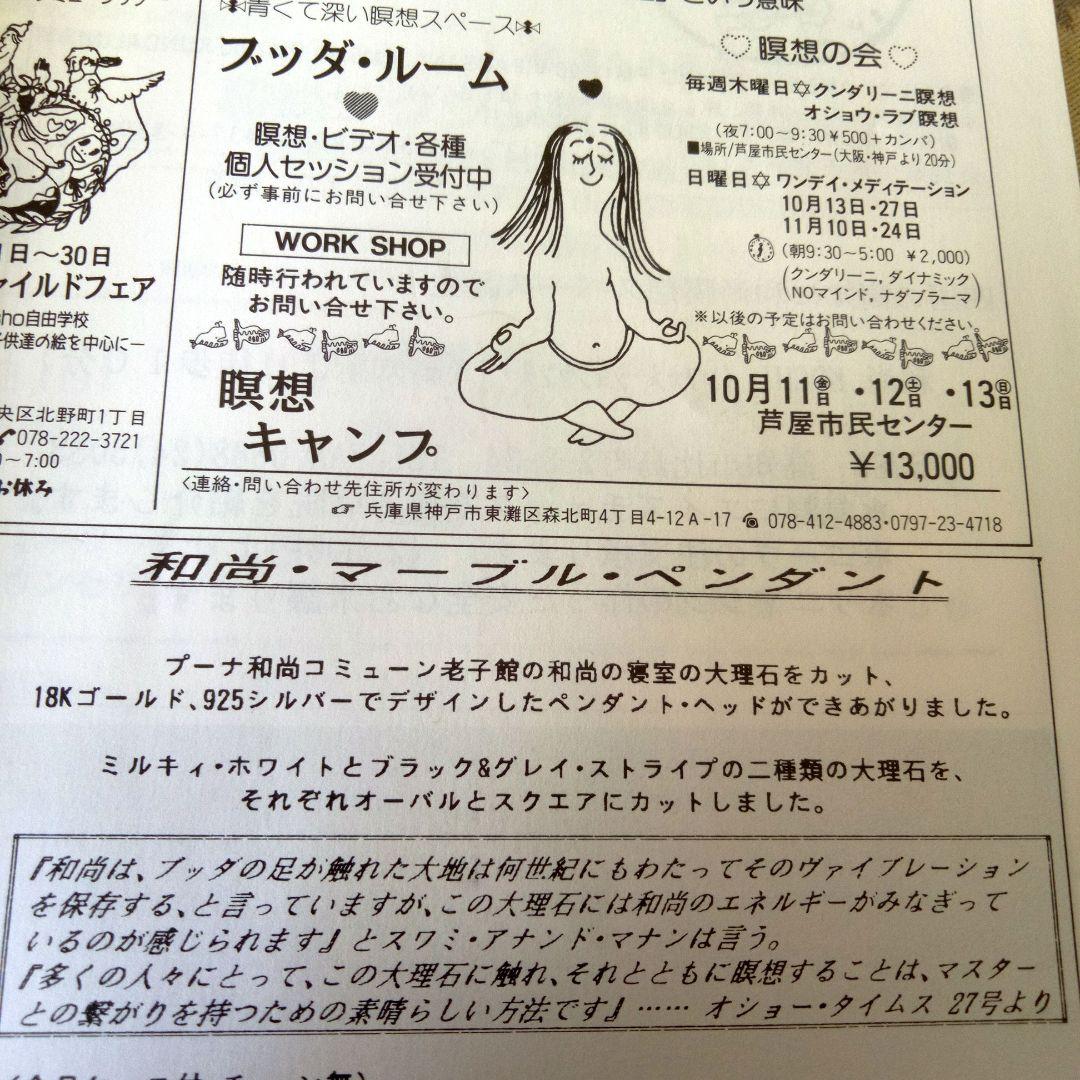 という意味
青くて深い瞑想スペース
ブッダ・ルーム
瞑想・ビデオ・各種
個人セッション受付中
(必ず事前にお問い合せ下さい)
WORK SHOP
随時行われていますので
お問い合せ下さい。
瞑想の会
毎週木曜日✡クンダリーニ瞑想
オショウ・ラブ瞑想
(夜7:00~9:30 ¥500+カンパ)
■場所/芦屋市民センター(大阪・神戸より20分)
日曜日✡ワンデイ・メディテーション
10月13日・27日
11月10日・24日
(朝9:30~5:00 ¥2,000)
(クンダリーニ, ダイナミック
NOマインド, ナダブラーマ)
※以後の予定はお問い合わせください。
瞑想
キャンプ
10月11金日・12土日・13日日
芦屋市民センター
¥13,000
<連絡・問い合わせ先住所が変わります>
☞ 兵庫県神戸市東灘区森北町4丁目4-12A-17 ☎ 078-412-4883・0797-23-4718
日~30日
イルドフェア
sho自由学校
子供達の絵を中心に―
央区北野町1丁目
078-222-3721
~7:00
お休み
和尚・マーブル・ペンダント
プーナ和尚コミューン老子館の和尚の寝室の大理石をカット、
18Kゴールド、925シルバーでデザインしたペンダント・ヘッドができあがりました。
ミルキィ・ホワイトとブラック&グレイ・ストライプの二種類の大理石を、
それぞれオーバルとスクエアにカットしました。
『和尚は、ブッダの足が触れた大地は何世紀にもわたってそのヴァイブレーション
を保存する、と言っていますが、この大理石には和尚のエネルギーがみなぎって
いるのが感じられます』とスワミ・アナンド・マナンは言う。
『多くの人々にとって、この大理石に触れ、それとともに瞑想することは、マスター
との繋がりを持つための素晴らしい方法です』…… オショー・タイムス 27号より